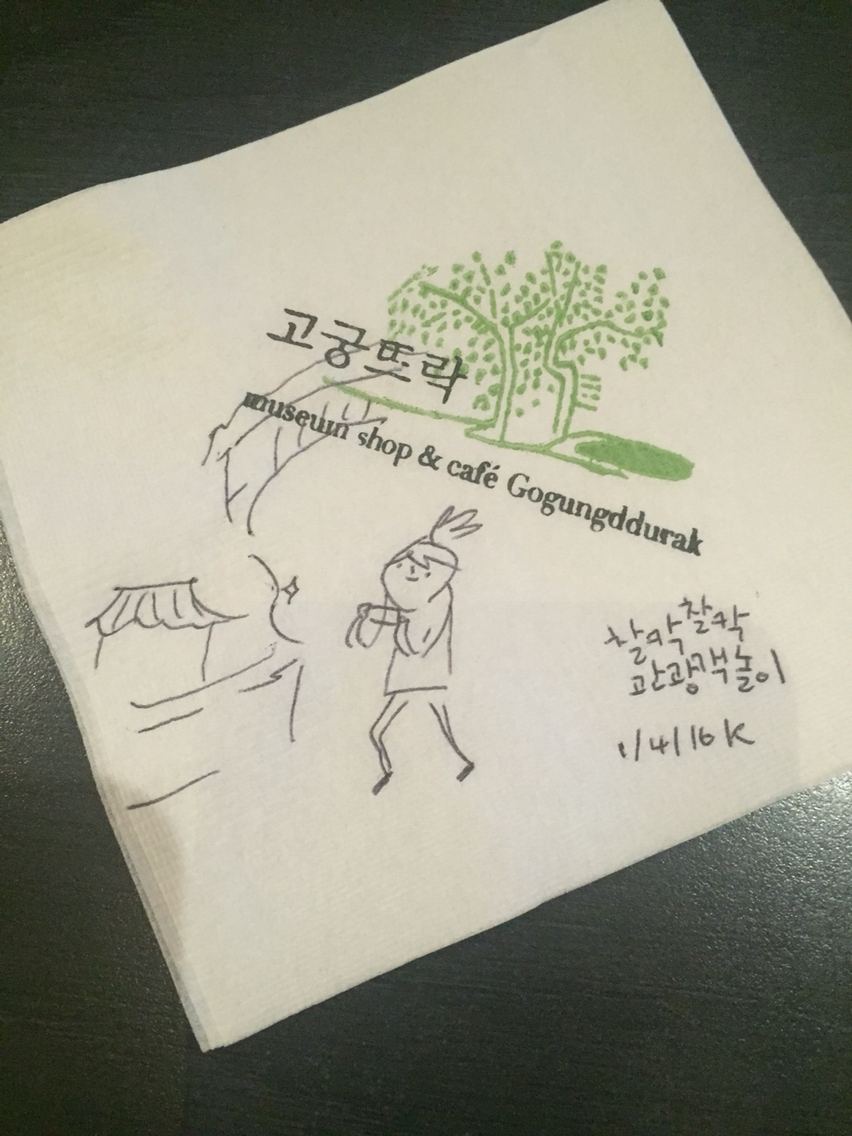 고궁뜨락
museum shop & café Gogungddurak
찰칵찰칵
관광객놀이
1/4/16 K